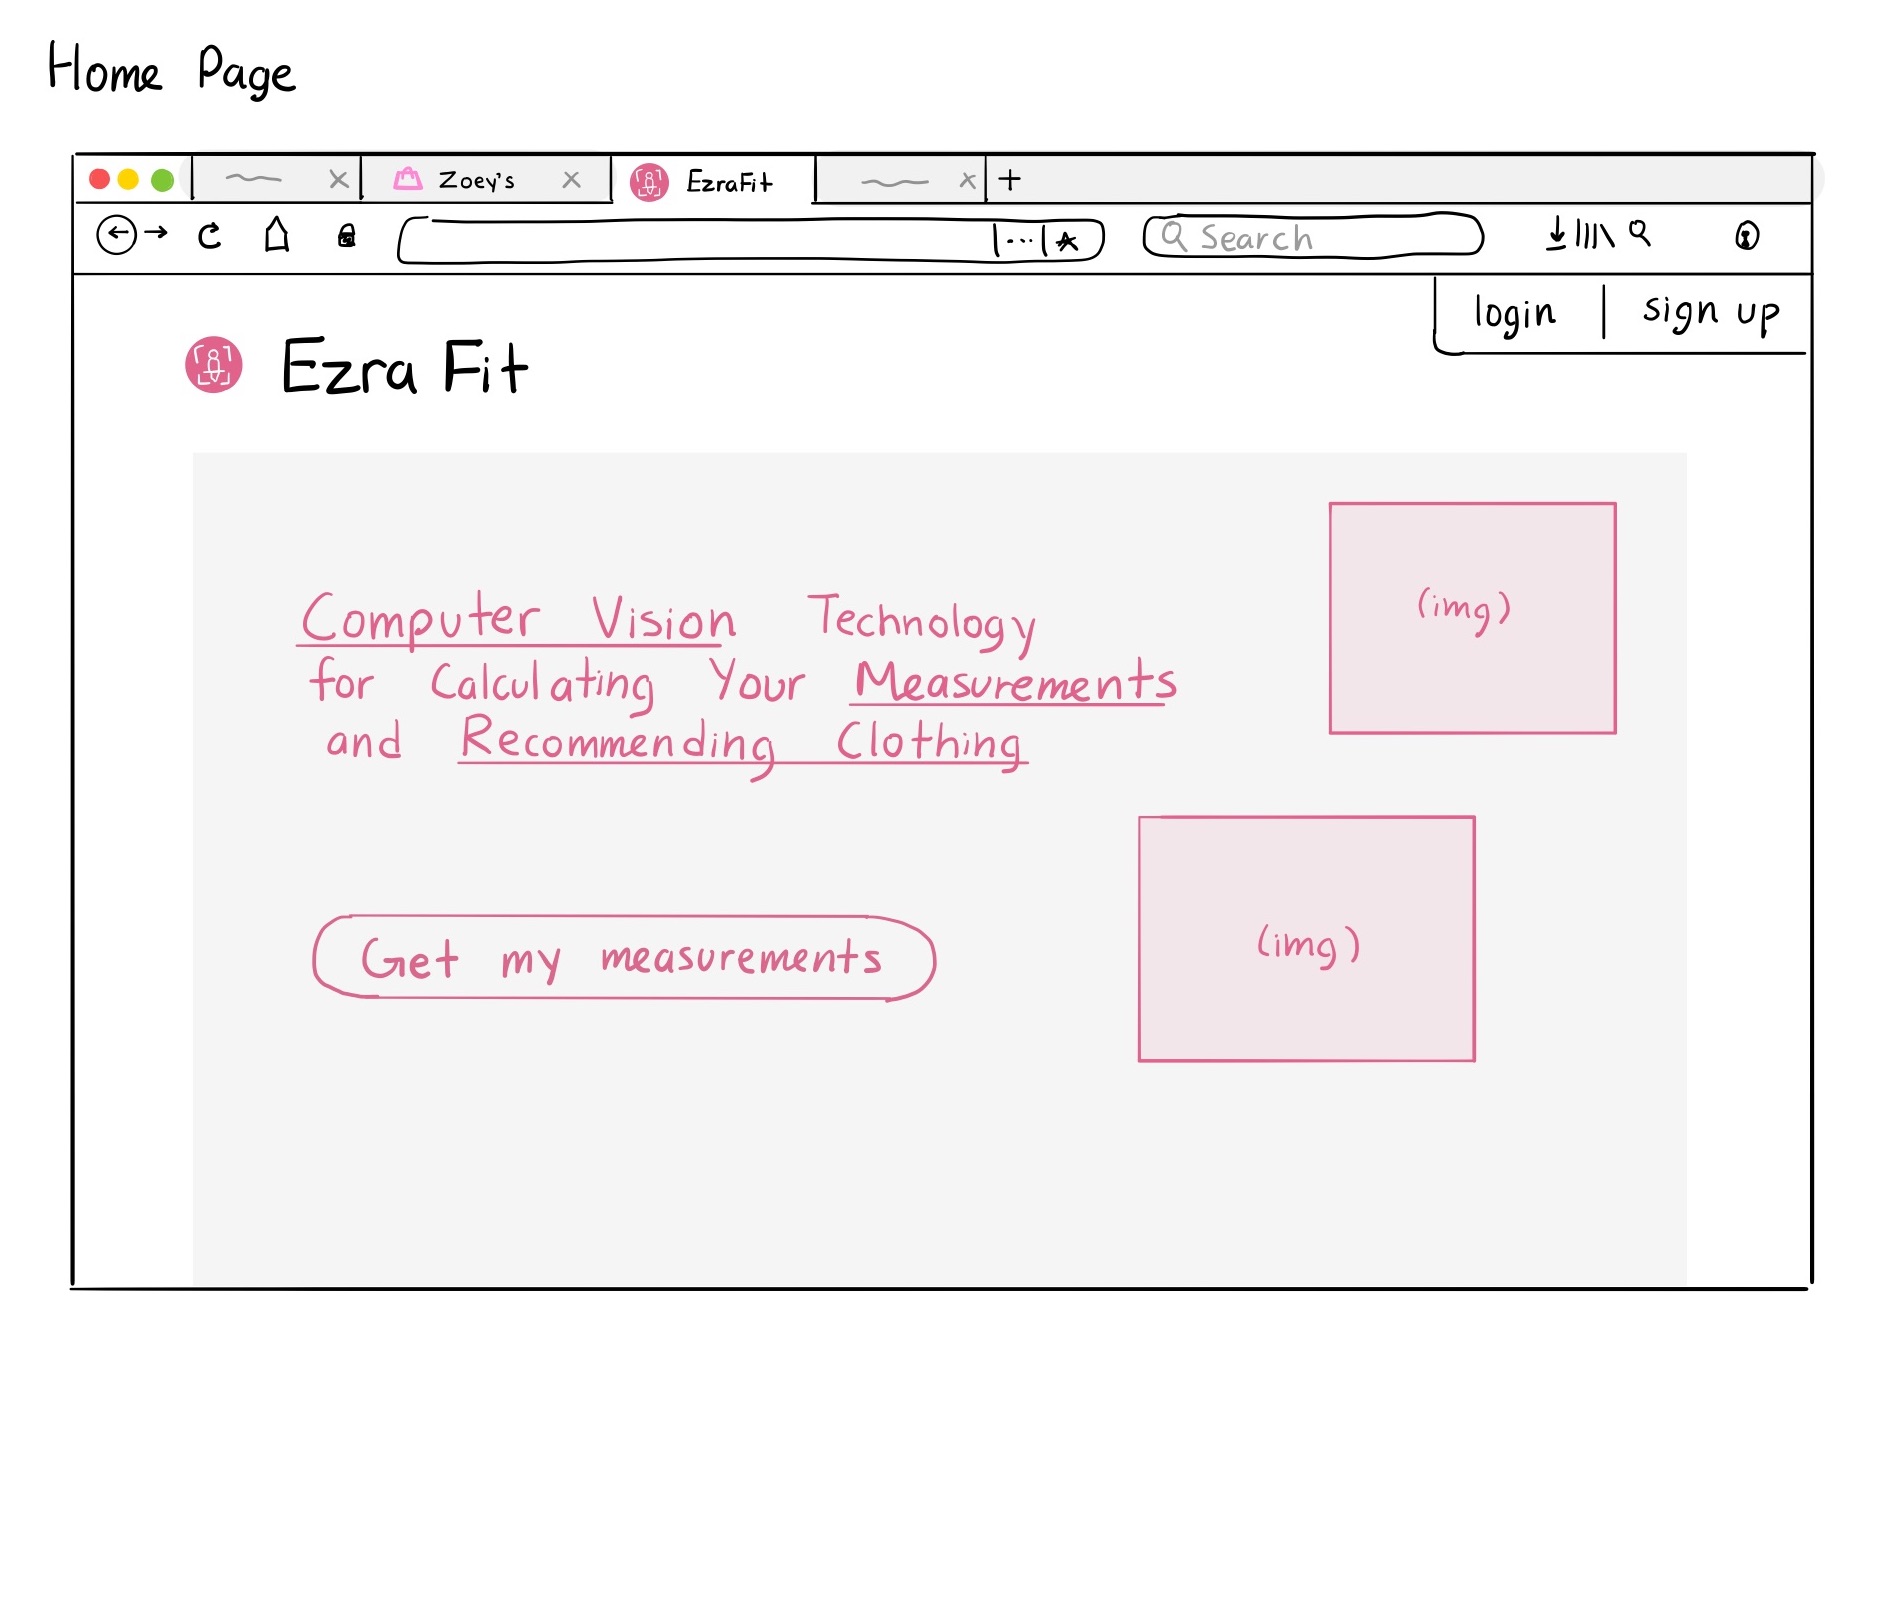 Home Page
Zoey's
EzraFit
Search
login | sign up
Ezra Fit
Computer Vision Technology
for Calculating Your Measurements
and Recommending Clothing
(img)
Get my measurements
(img)